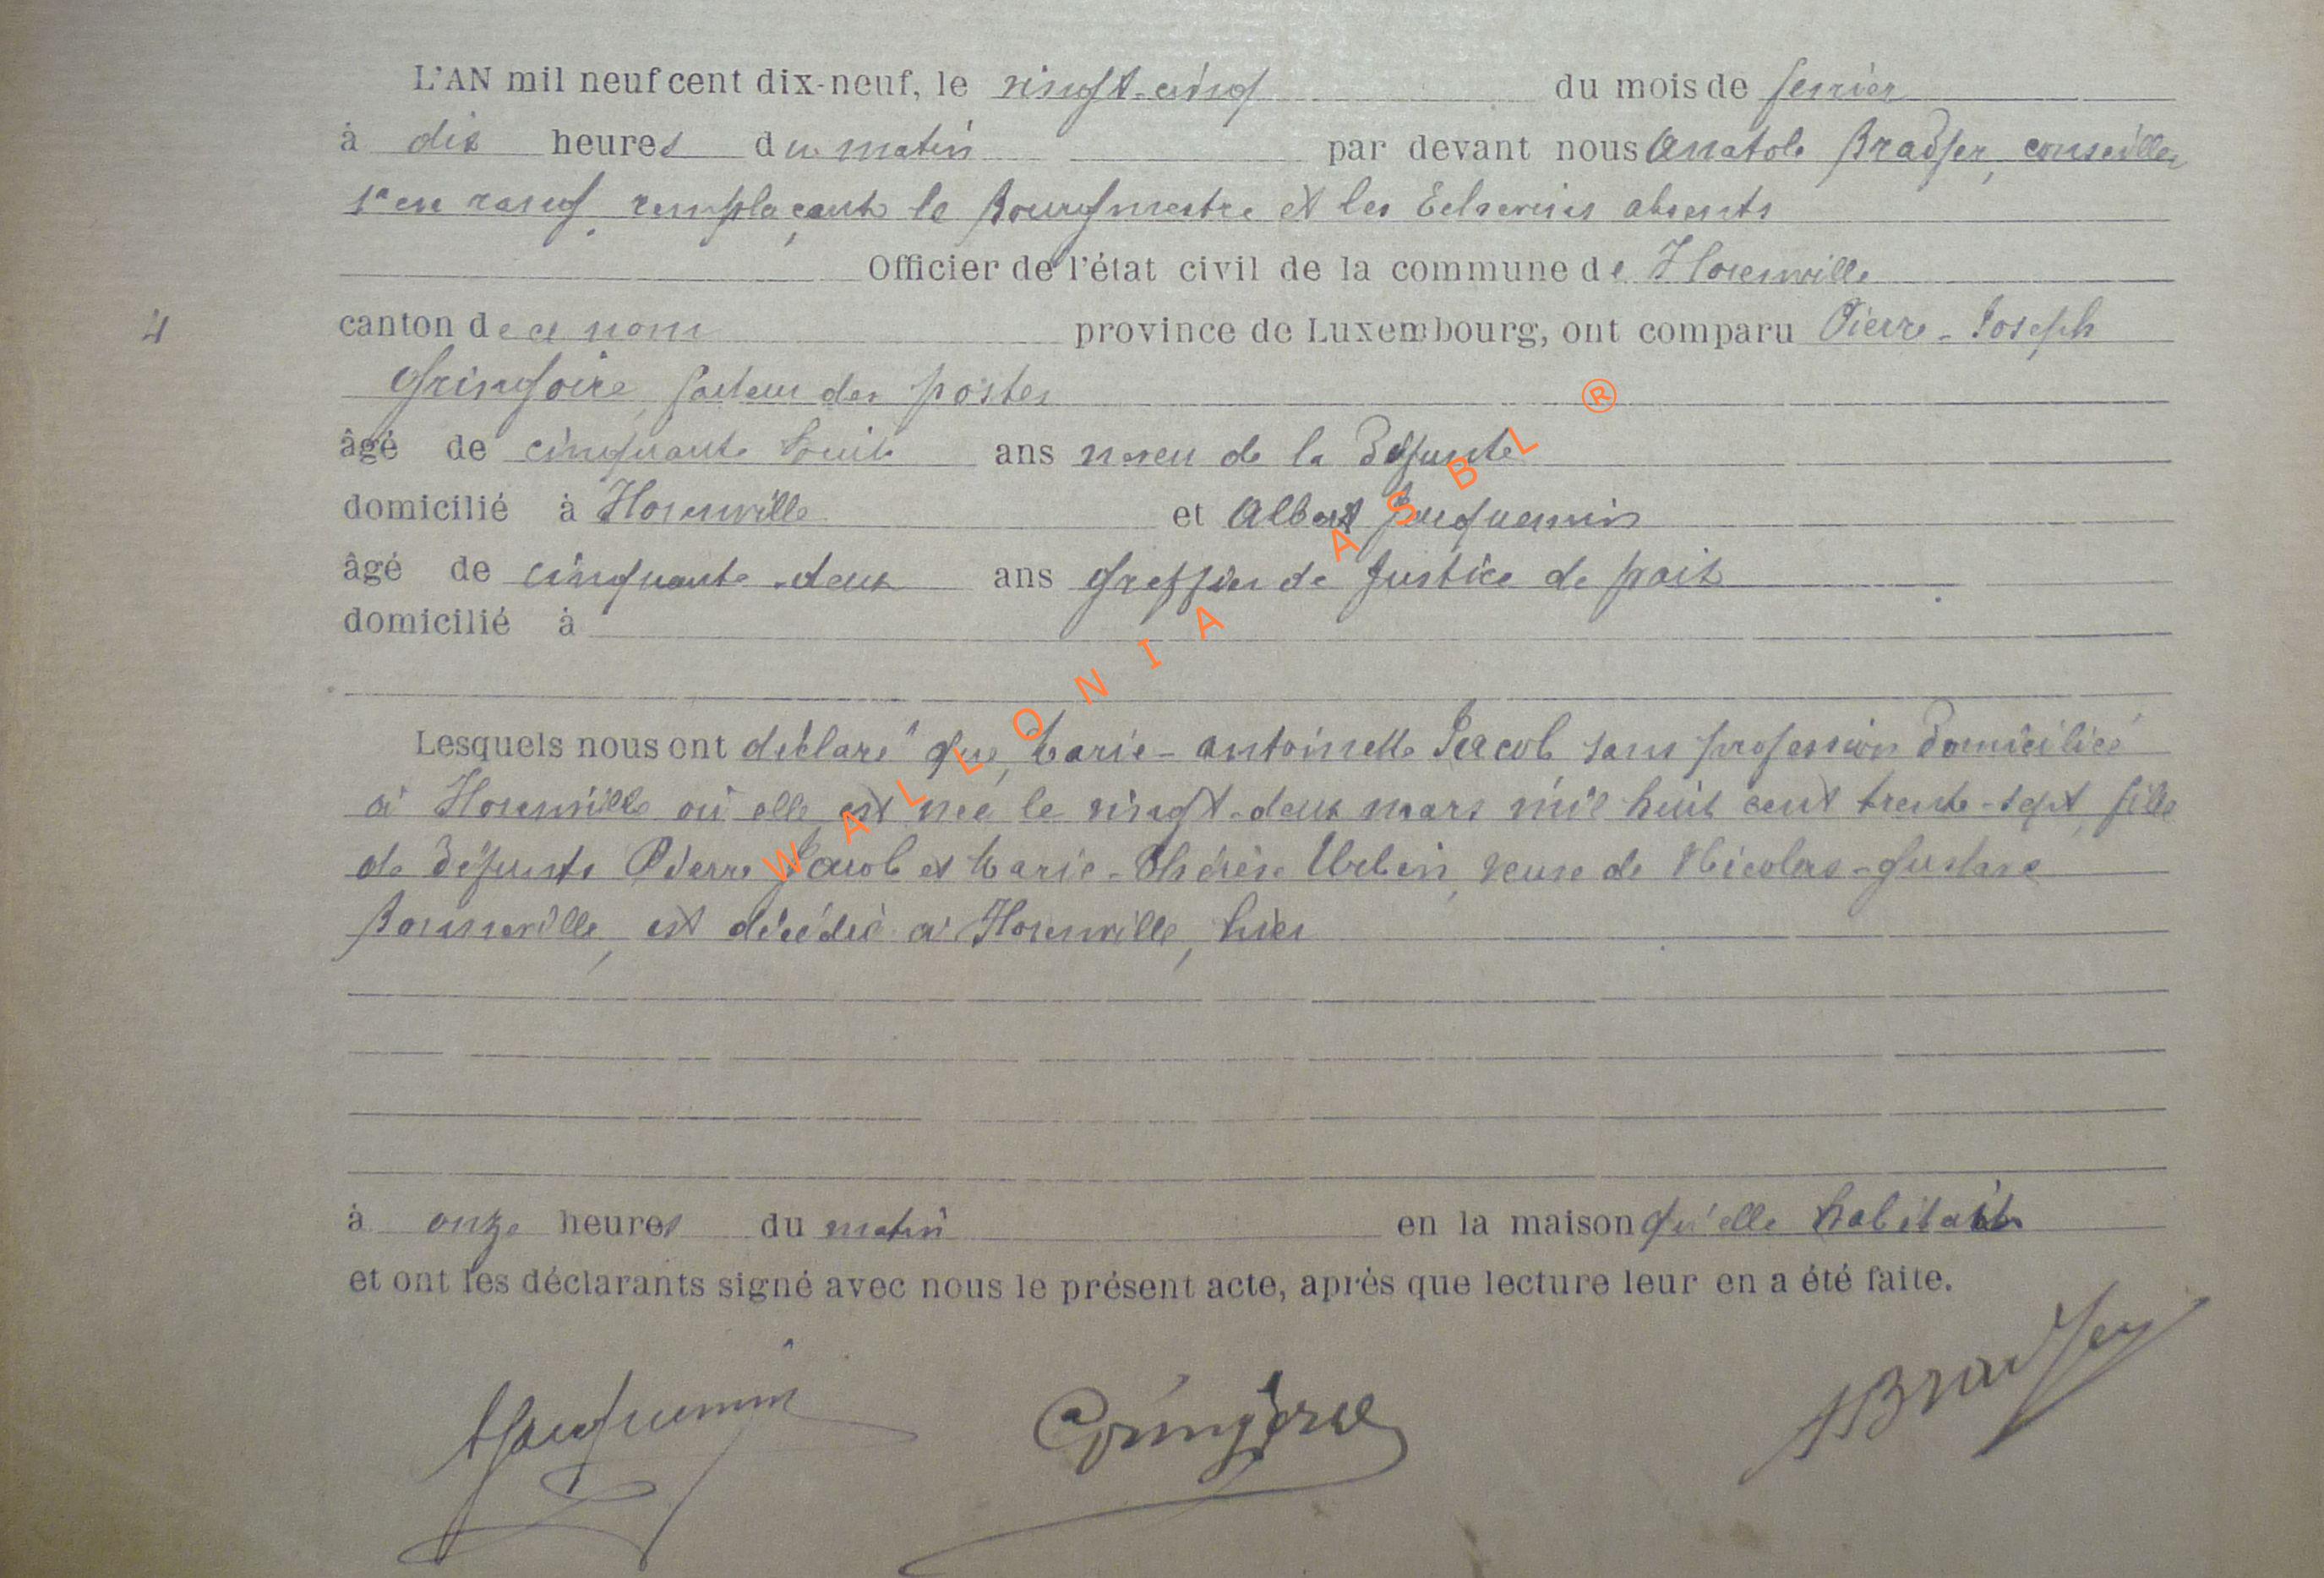 L'AN mil neuf cent dix-neuf, le vingt-cinq du mois de février
à dix heures du matin par devant nous Anatole Bradfer, conseiller
1er en rang, remplaçant le Bourgmestre et les Echevins absents
Officier de l'état civil de la commune de
4 canton de ce nom province de Luxembourg, ont comparu Pierre-Joseph
Gringoire, facteur des postes
âgé de cinquante huit ans neveu de la défunte
domicilié à et Albert Jacquemin
âgé de cinquante-deux ans greffier de Justice de paix
domicilié à
Lesquels nous ont déclaré que, Marie-Antoinette Jacob sans profession domiciliée
à où elle est née le vingt-deux mars mil huit cent trente-sept, fille
de défunts Pierre Jacob et Marie-Thérèse Urbin, veuve de Nicolas-Gustave
est décédée à hier
à onze heures du matin en la maison qu'elle habitait
et ont les déclarants signé avec nous le présent acte, après que lecture leur en a été faite.
AJacquemin Gringoire ABradfer
WALLONIA ASBL ®